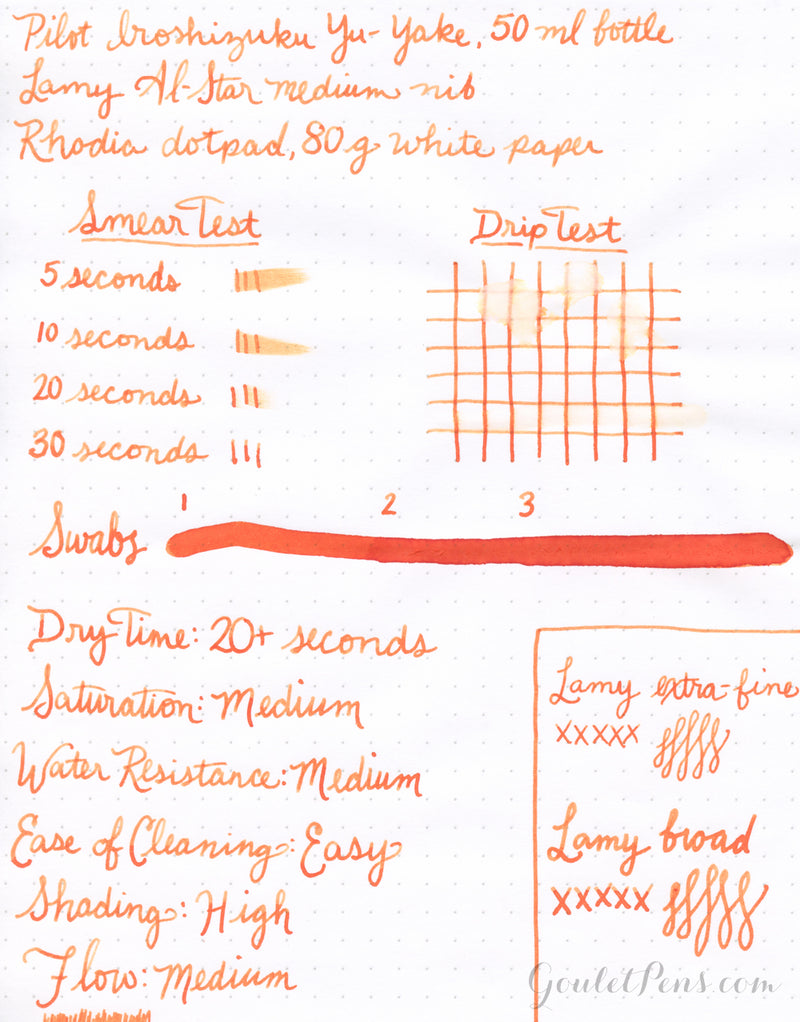 Pilot Iroshizuku Yu-Yake, 50 ml bottle
Lamy Al-Star medium nib
Rhodia dotpad, 80g white paper
Smear Test
5 seconds
10 seconds
20 seconds
30 seconds
Drip Test
1 2 3
Swabs
Dry Time: 20+ seconds
Saturation: Medium
Water Resistance: Medium
Ease of Cleaning: Easy
Shading: High
Flow: Medium
Lamy extra-fine
xxxxx
Lamy broad
xxxxx
GouletPens.com